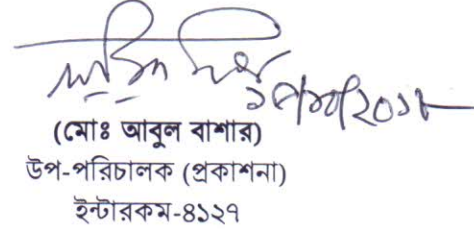 (মোঃ আবুল বাশার)
উপ-পরিচালক (প্রকাশনা)
ইন্টারকম-৪১২৭